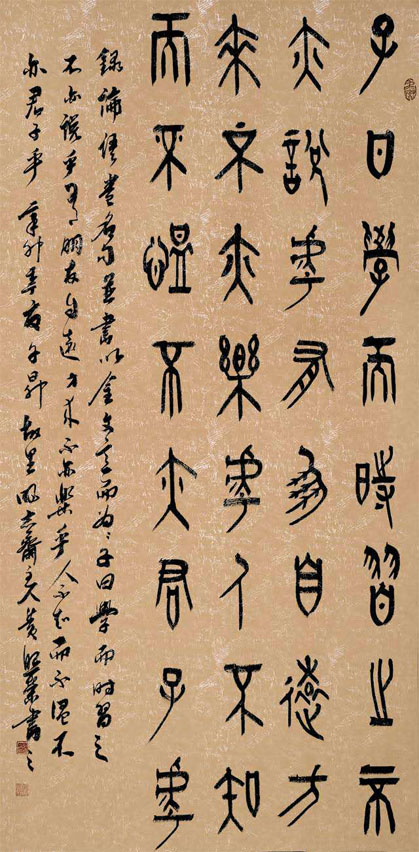 子曰學而時習之不
亦說乎有朋自遠方
來不亦樂乎人不知
而不慍不亦君子乎
錄論語卷名句並書以金文意而為之子曰學而时習之
不亦說乎有朋友自遠方來不亦樂乎人不知而不慍不
亦君子乎辛卯春於子故里齋主人黃書